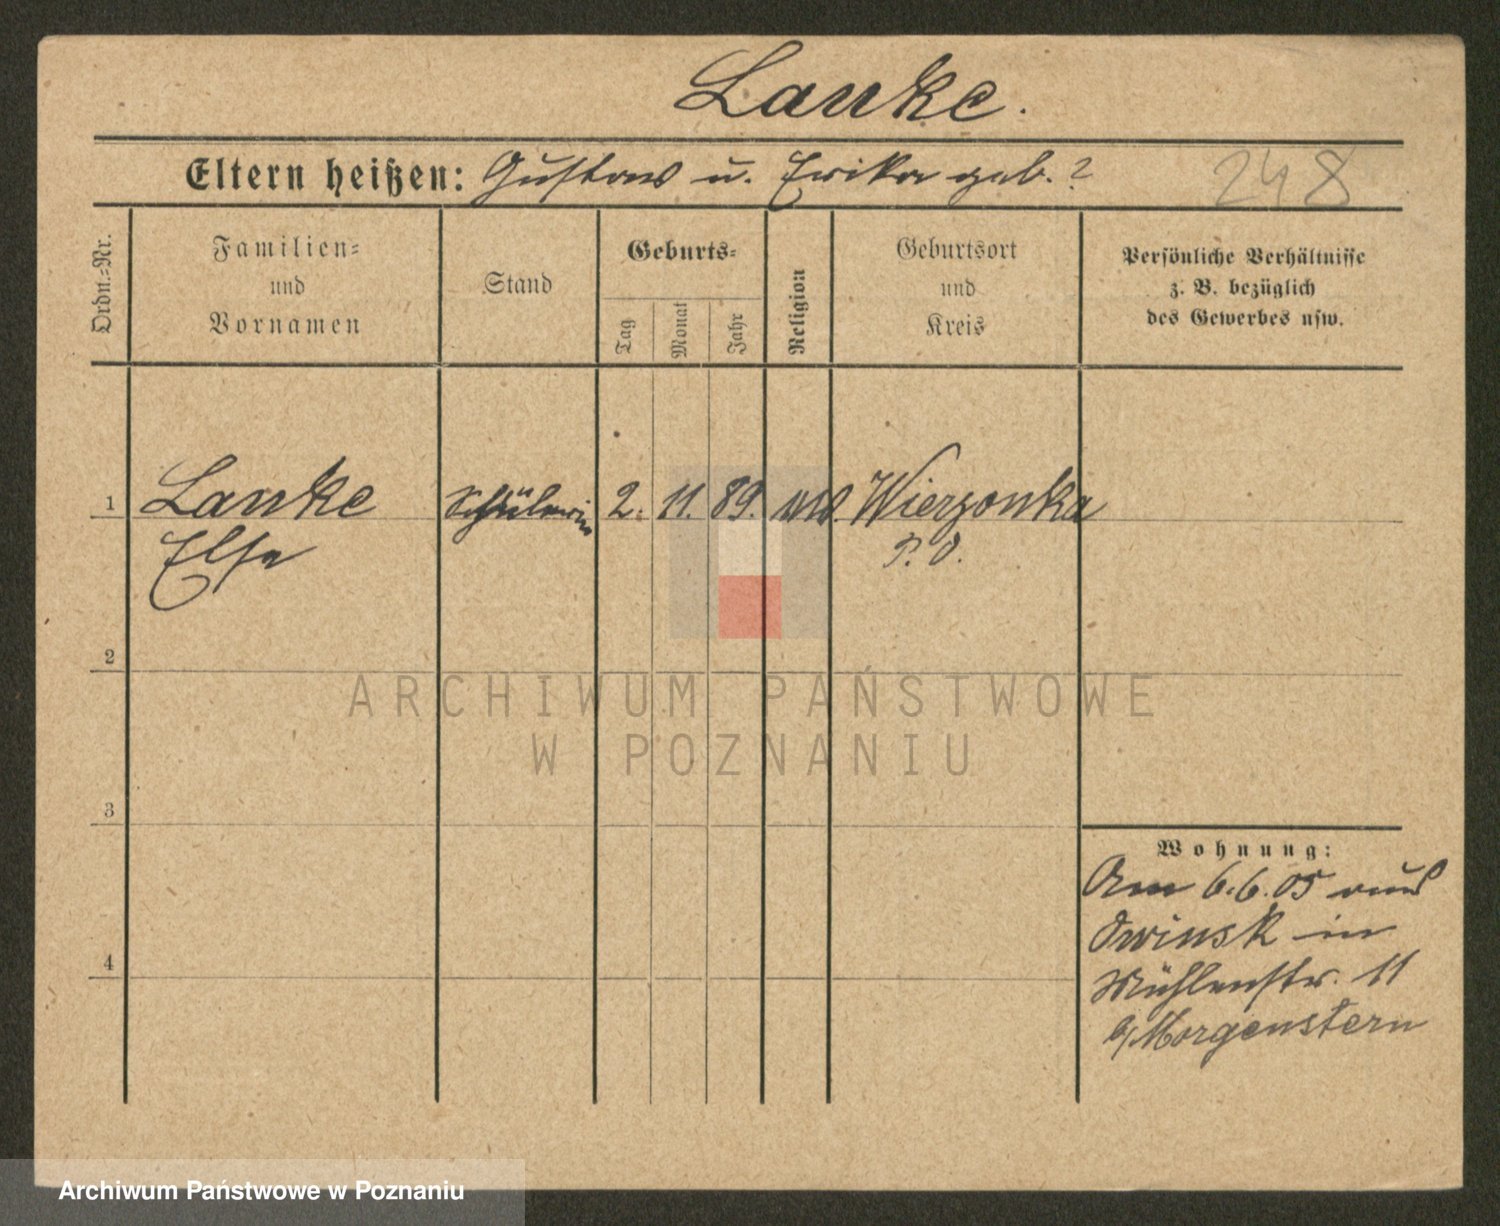 Lanke.
Eltern heißen: Gustav u. Erika geb. ?
248
Ordn.=Nr.
Familien=
und
Vornamen
Stand
Geburts=
Tag
Monat
Jahr
Religion
Geburtsort
und
Kreis
Persönliche Verhältnisse
z. B. bezüglich
des Gewerbes usw.
1
Lanke
Else
Schülerin
2. 11. 89.
Wierzonka
P. O.
2
ARCHIWUM PAŃSTWOWE
W POZNANIU
3
4
Wohnung:
Am 6.6.05 aus
Owinsk in
Mühlenstr. 11
b/Morgenstern
Archiwum Państwowe w Poznaniu